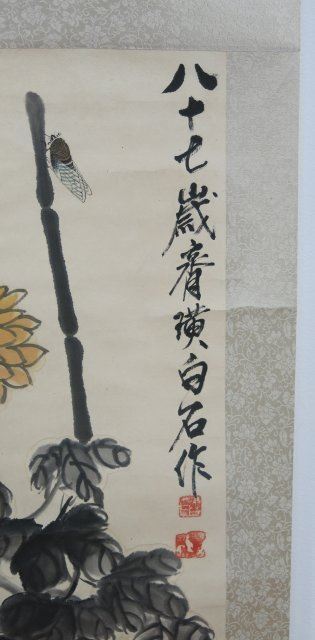 八十七歲齊璜白石作